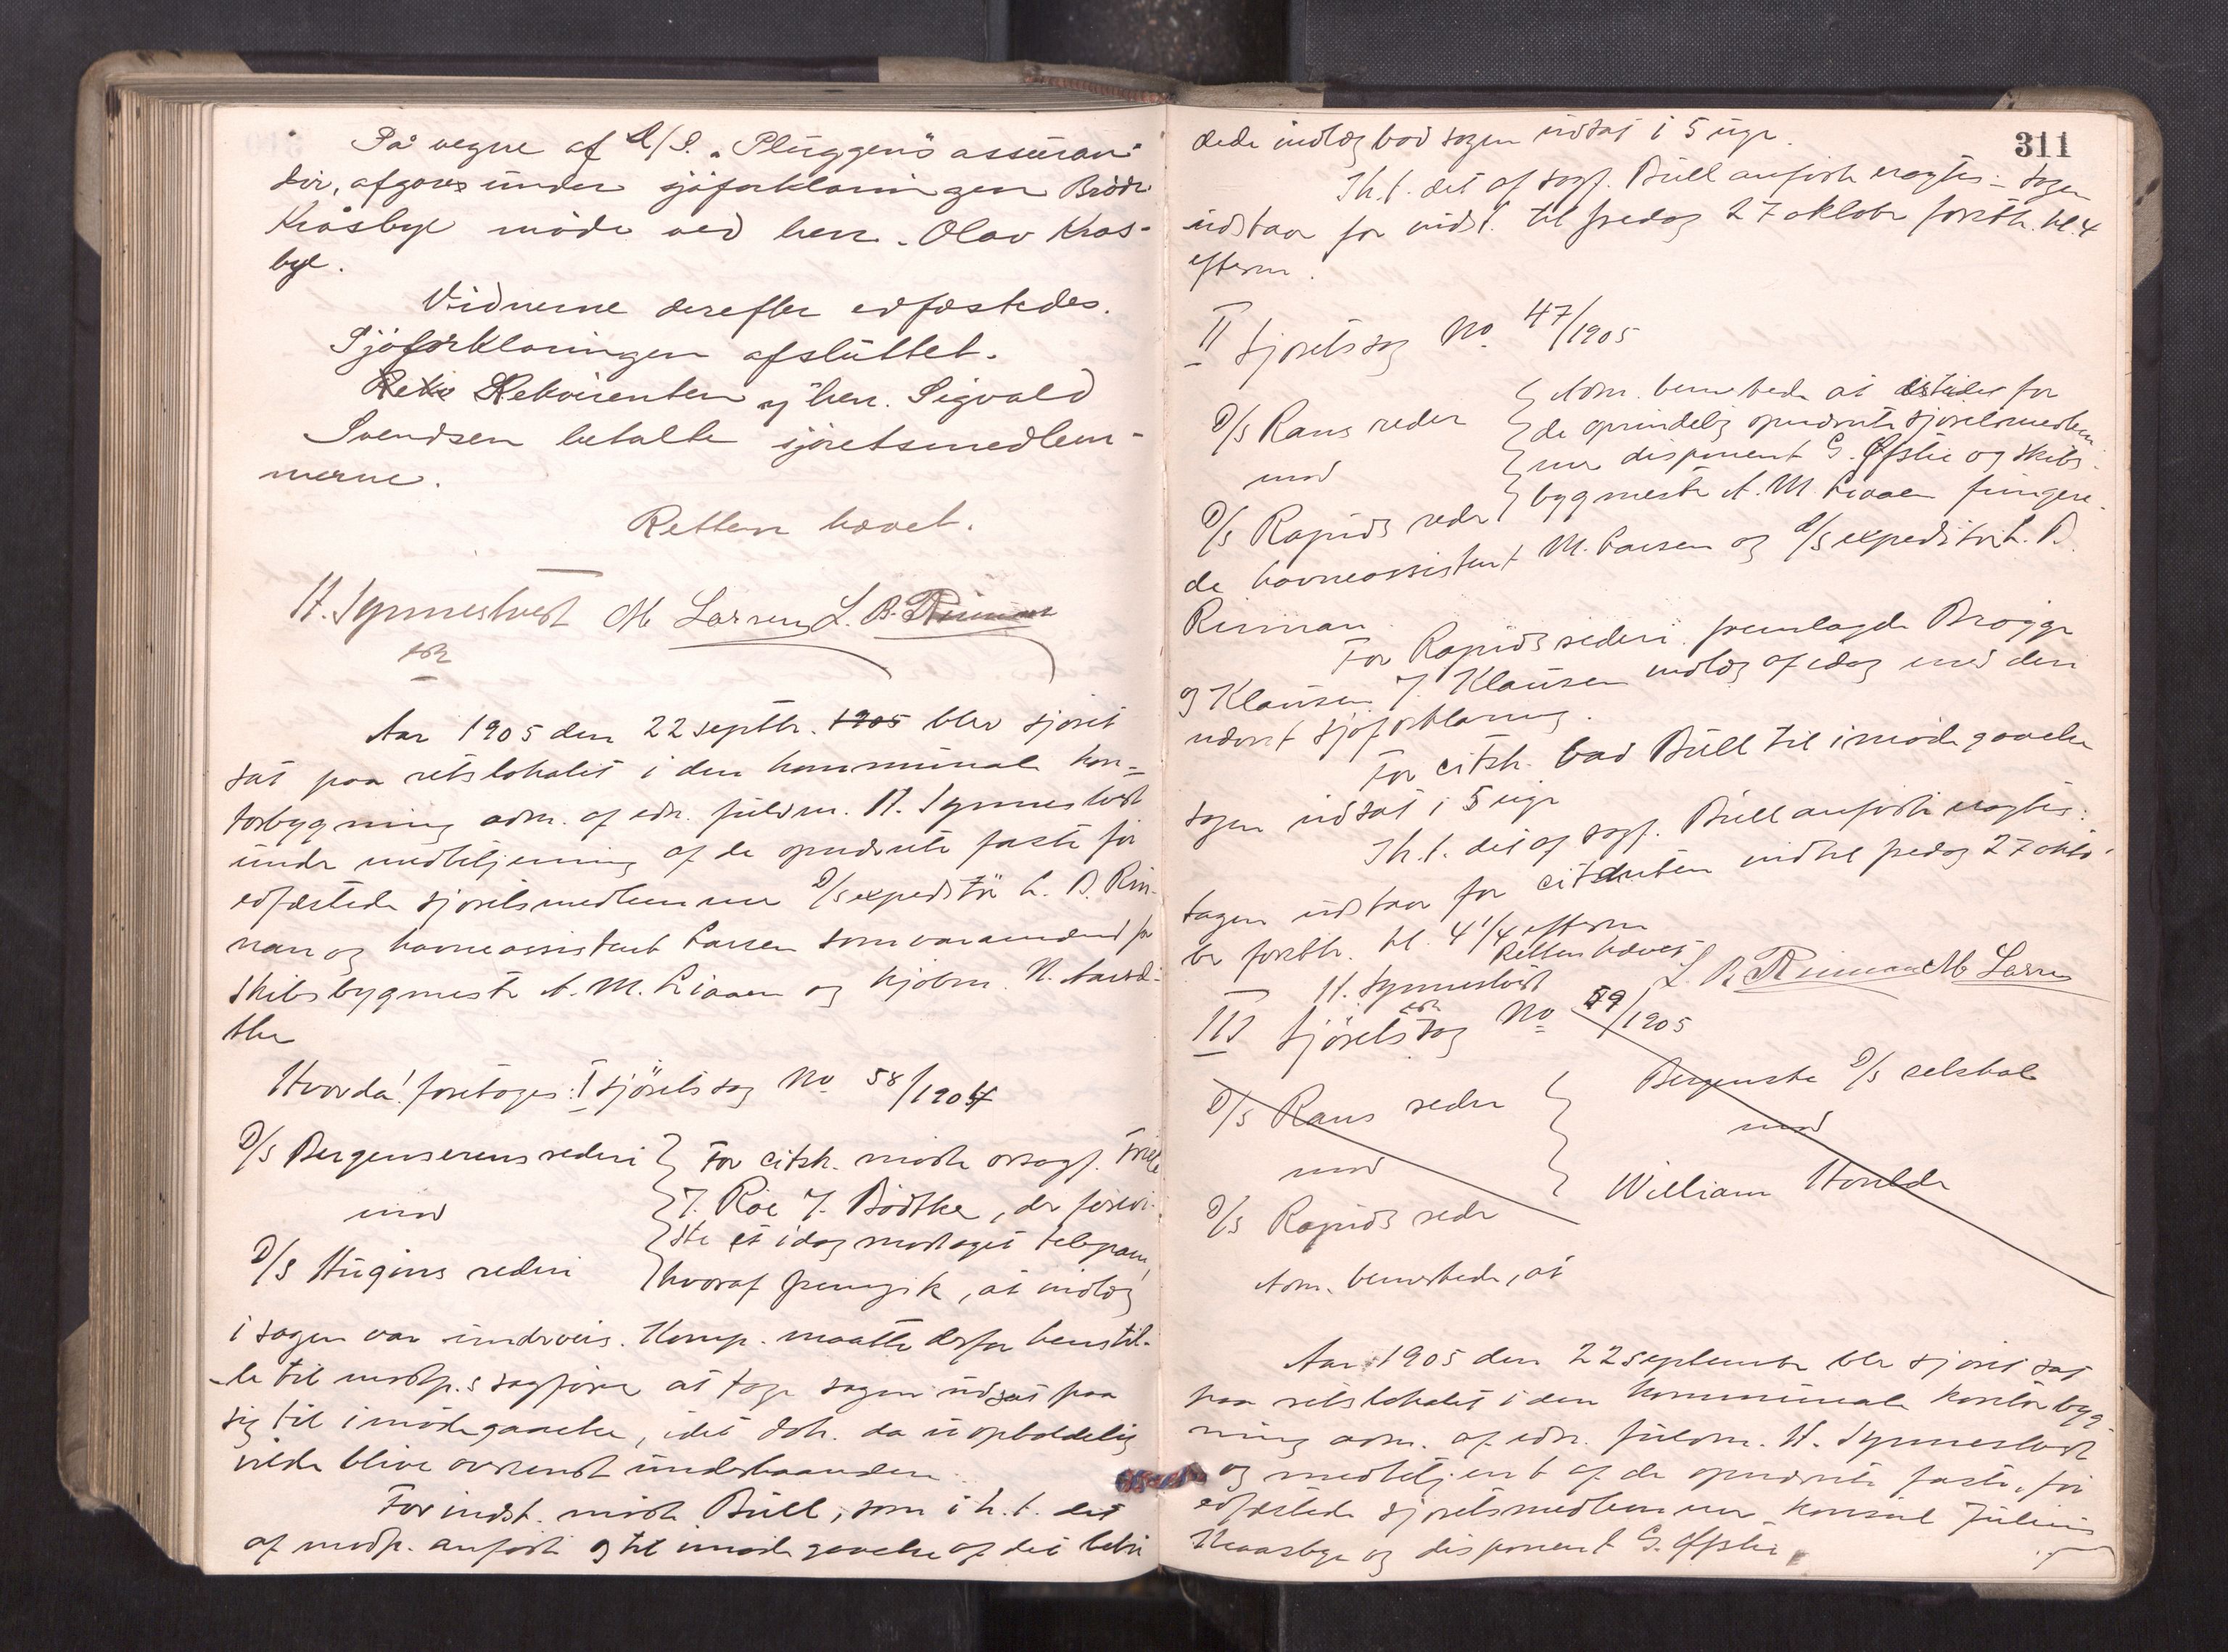 På vegne af D/S. "Pluggens" assuran-
dör, afgaves under sjöforklaringen Brödr
Kråsbye möde ved herr. Olav Kras-
bye.
Vidnerne derefter edfæstedes.
Sjöforklaringen afsluttet.
Rekvirenten herr. Sigvald
Svendsen betalte sjöretsmedlem-
merne.
Retten hævet.
H. Synnestvedt M Larsen L. B. Rinnan
edr
Aar 1905 den 22 septbr. 1905 blev sjöret
sat paa retslokalet i den kommunale kon-
torbygning adm. af edr. fuldm. H. Synnestvedt
under medbetjening af de opnævnte faste för
edfæstede sjöretsmedlemmer D/S expeditör L. B. Rin-
nan og havneassistent Larsen som varamænd for
skibsbygmester A. M. Liaaen og kjöbm. N. Aarsæ-
ther
Hvorda! foretoges: I sjöretssag No 58/1904
D/S Bergenserens rederi } For citsk. mödte orsagf.
mod } f. Roe f. Bödtker, der forevi-
D/S Hugins rederi } ste et idag modtaget telegram,
hvoraf fremgik, at indlæg
i sagen var underveis. Komp. maatte derfor henstil-
le til modp.s sagförer at tage sagen udsat paa
sig til imödegaaelse, idet dok. da uopholdelig
vilde blive oversendt underhaanden.
For indst. mödte Bull, som i h. t. det
af modp. anförte og til imödegaaelse af det bebu
311
dede indlæg bad sagen udsat i 5 uger.
I h. t. det af sagf. Bull anförte eragtes: Sagen
udstaar for indst. til fredag 27 oktober förstk. kl. 4
efterm.
II Sjöretssag No 47/1905
D/S Rans rederi } Adm. bemerkede at istedet for
mod } de oprindelig opnævnte sjöretsmedlem
D/S Rapids rederi } mer disponent G. Öfstie og skibs-
bygmester A. M. Liaaen fungere-
de havneassistent M. Larsen og D/S expeditör L. B.
Rinnan.
For Rapids rederi fremlagde Brögger
og Klausen f. Klausen indlæg af idag med den
nævnt sjöforklaring.
For citsk. bad Bull til imödegaaelse
sagen udsat i 5 uger
I h. t. det af sagf. Bull anförte eragtes:
Sagen udstaar for citanten indtil fredag 27 okto-
ber förstk. kl. 4 1/4 efterm
Retten hævet.
H. Synnestvedt L. B. Rinnan M Larsen
edr
III Sjöretssag No 59/1905
D/S Rans rederi } Bergenske D/S selskab
mod } mod
D/S Rapids rederi William
Adm. bemerkede, at
Aar 1905 den 22 september blev sjöret sat
paa retslokalet i den kommunale kontorbyg-
ning adm. af edr. fuldm. H. Synnestvedt
og medbetjent af de opnævnte faste, för
edfæstede sjöretsmedlemmer konsul Julius
Kraasbye og disponent G. Öfstie